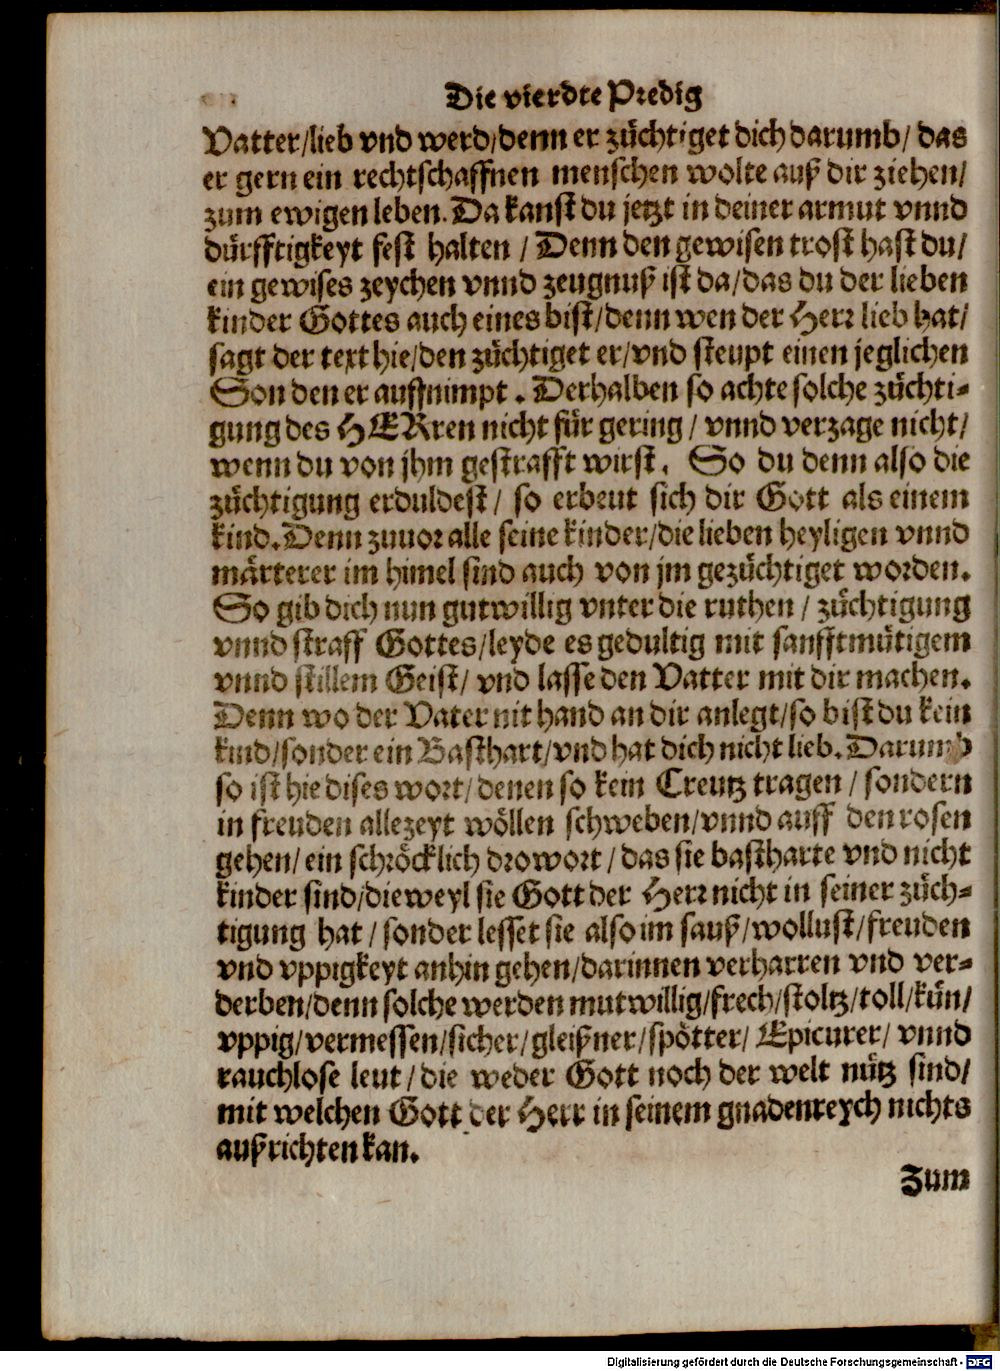 Die vierdte Predig
Vatter/lieb vnd werd/denn er züchtiget dich darumb/ das
er gern ein rechtschaffnen menschen wolte auß dir ziehen/
zum ewigen leben. Da kanst du jetzt in deiner armut vnnd
dürfftigkeyt fest halten / Denn den gewisen trost hast du/
ein gewises zeychen vnnd zeugnuß ist da/das du der lieben
kinder Gottes auch eines bist/denn wen der Herr lieb hat/
sagt der text hie/den züchtiget er/vnd steupt einen jeglichen
Son den er auffnimpt. Derhalben so achte solche züchti-
gung des HERren nicht für gering / vnnd verzage nicht/
wenn du von jhm gestrafft wirst. So du denn also die
züchtigung erduldest/ so erbeut sich dir Gott als einem
kind. Denn zuuor alle seine kinder/die lieben heyligen vnnd
märterer im himel sind auch von jm gezüchtiget worden.
So gib dich nun gutwillig vnter die ruthen / züchtigung
vnnd straff Gottes/leyde es gedultig mit sanfftmütigem
vnnd stillem Geist/ vnd lasse den Vatter mit dir machen.
Denn wo der Vater nit hand an dir anlegt/so bist du kein
kind/sonder ein Basthart/vnd hat dich nicht lieb. Darumb
so ist hie dises wort/ denen so kein Creutz tragen / sondern
in freuden allezeyt wöllen schweben/vnnd auff den rosen
gehen/ ein schröcklich drowort / das sie bastharte vnd nicht
kinder sind/dieweyl sie Gott der Herr nicht in seiner züch-
tigung hat / sonder lesset sie also im sauß/wollust/freuden
vnd vppigkeyt anhin gehen/darinnen verharren vnd ver-
derben/denn solche werden mutwillig/frech/stoltz/toll/kün/
vppig/vermessen/sicher/gleißner/spötter/ Epicurer/ vnnd
rauchlose leut / die weder Gott noch der welt nütz sind/
mit welchen Gott der Herr in seinem gnadenreych nichts
außrichten kan.
Zum
Digitalisierung gefördert durch die Deutsche Forschungsgemeinschaft - DFG